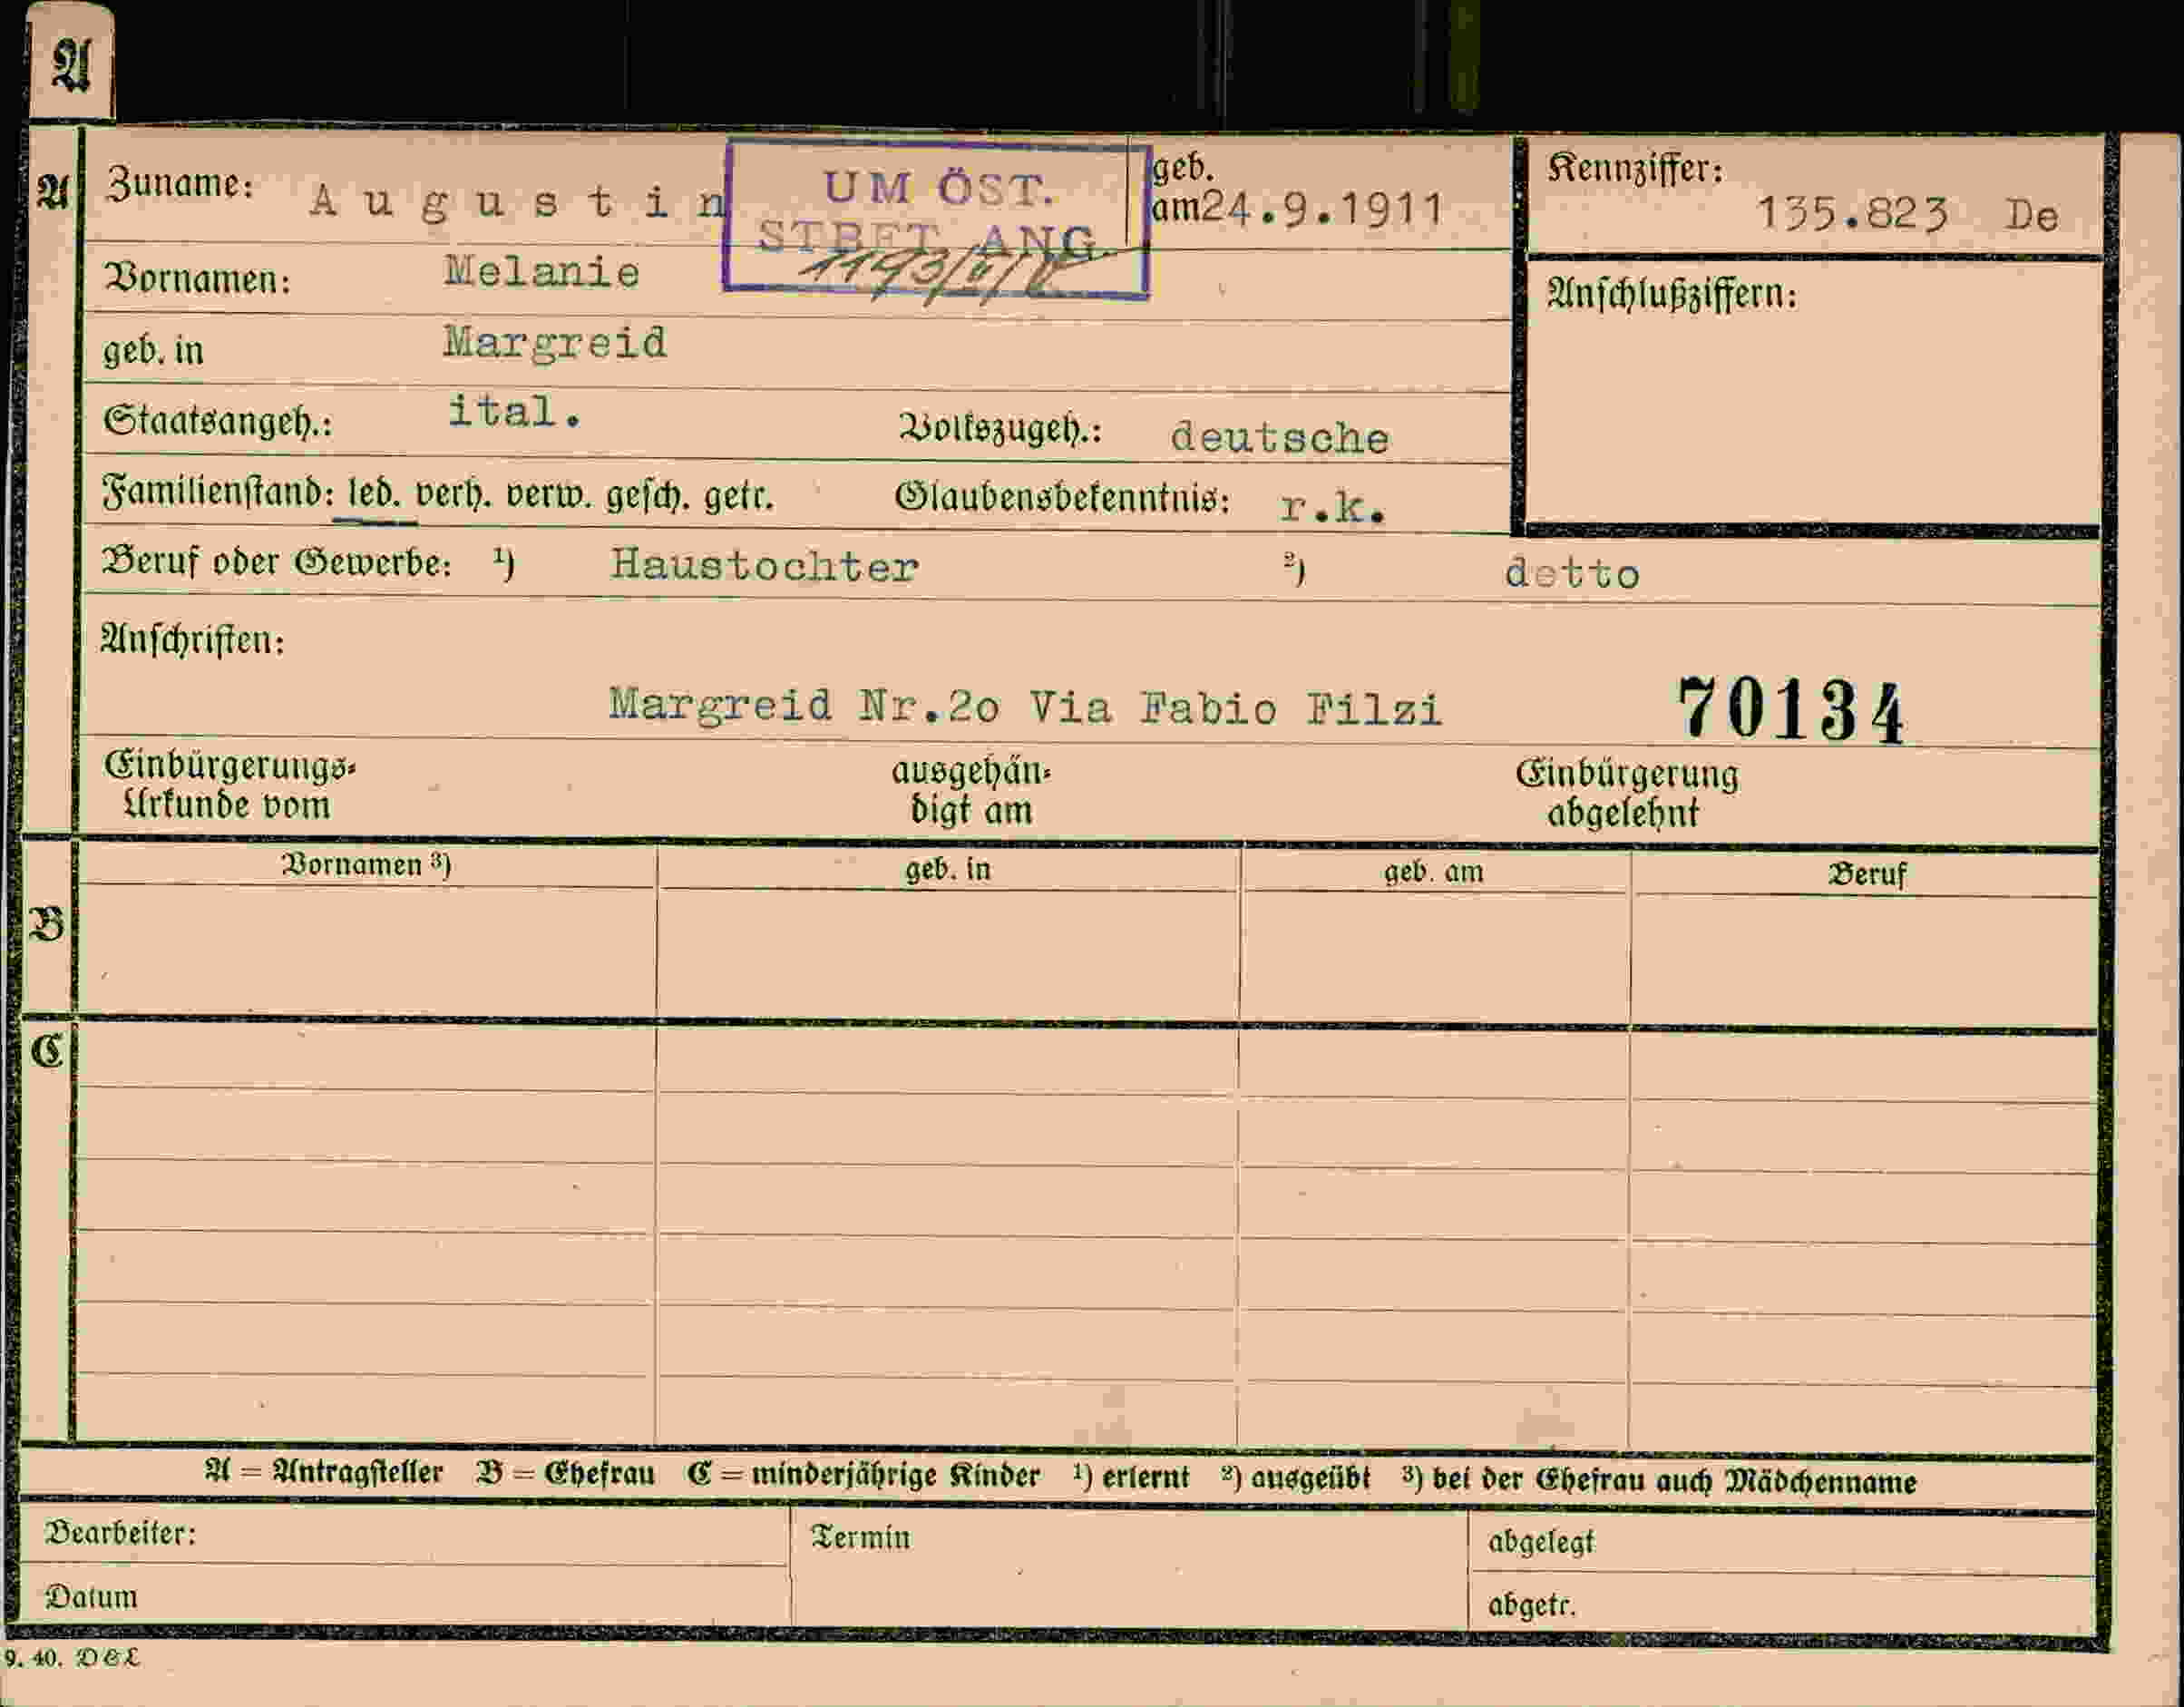 A
A Zuname: Augustin UM ÖST. geb. am 24.9.1911 Kennziffer: 135.823 De
STBET. ANG.
Vornamen: Melanie Anschlußziffern:
geb. in Margreid
Staatsangeh.: ital. Volkszugeh.: deutsche
Familienstand: led. verh. verw. gesch. getr. Glaubensbekenntnis: r.k.
Beruf oder Gewerbe: ¹) Haustochter ²) detto
Anschriften:
Margreid Nr.2o Via Fabio Filzi 70134
Einbürgerungs- ausgehän- Einbürgerung
Urkunde vom digt am abgelehnt
Vornamen ³) geb. in geb. am Beruf
B
C
A = Antragsteller B = Ehefrau C = minderjährige Kinder ¹) erlernt ²) ausgeübt ³) bei der Ehefrau auch Mädchenname
Bearbeiter: Termin abgelegt
Datum abgetr.
9. 40. D&L